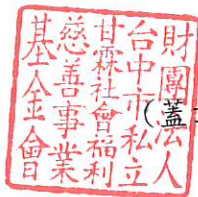 財團法人
台中市私立
甘霖社會福利
慈善事業
基金會
(蓋